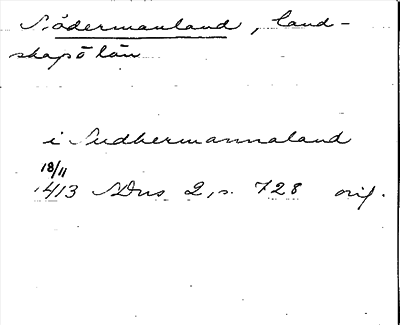 Södermanland, land-
skap o län
i Sudhermannaland
18/11
1413 SDns 2, s. 728 orig.